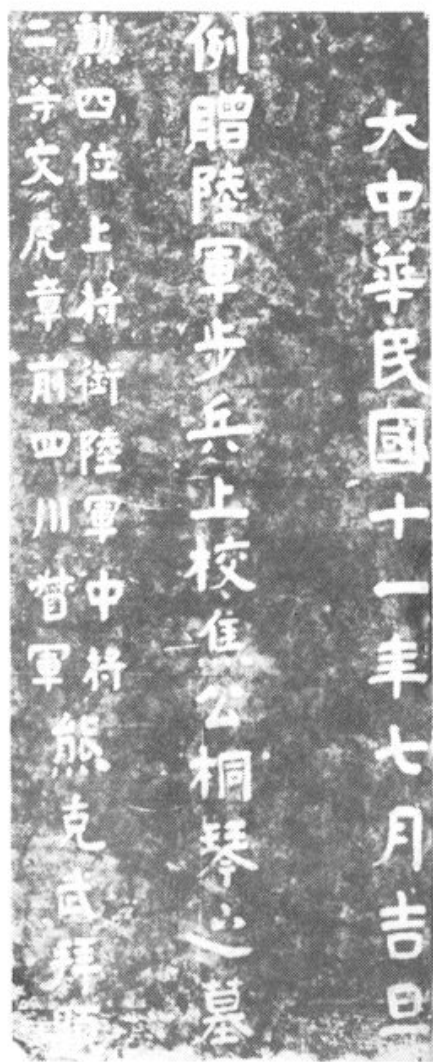 大中華民國十一年七月吉旦
例贈陸軍步兵上校崔公桐琴之墓
勲四位上将銜陸軍中将
二等文虎章前四川督軍熊克武拜